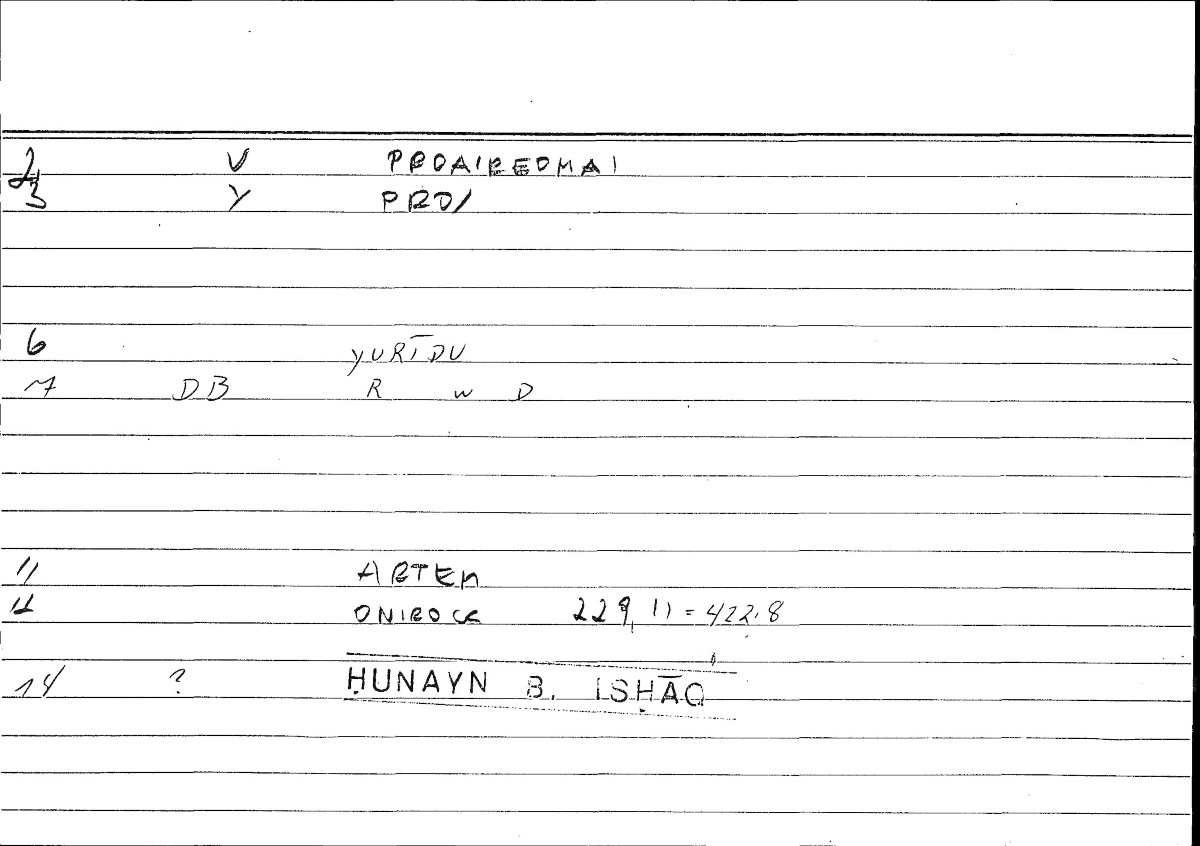 2 V PROAIREOMAI
3 Y PRO/
6 YURĪDU
7 DB R W D
11 ARTEM
12 ONIROCR 229, 11 = 422.8
14 ? ḤUNAYN B. ISḤĀQ